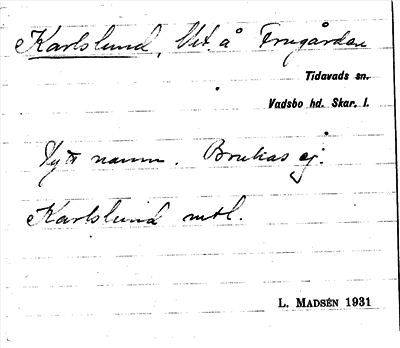 Karlslund, Ut. å Frugården
Tidavads sn.
Vadsbo hd. Skar. l.
Nytt namn. Brukas ej.
Karlslund mtl.
L. MADSÉN 1931